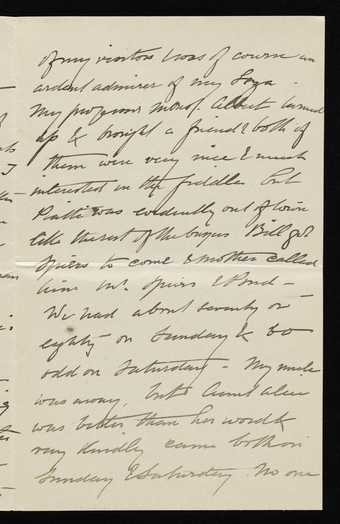 of my visitors was of course an
ardent admirer of my
My Mons. Albert turned
up & brought a friend & both of
them were very nice & much
interested in the fiddles but
Patti was evidently out of
like the rest of the Bill got
Spiers to come & mother called
him Mr. Spiers & Pond –
We had about seventy or
eighty on Sunday & 60
odd on Saturday – My uncle
was away, but Aunt Alice
was better than her word &
very kindly came both on
Sunday & Saturday. No one